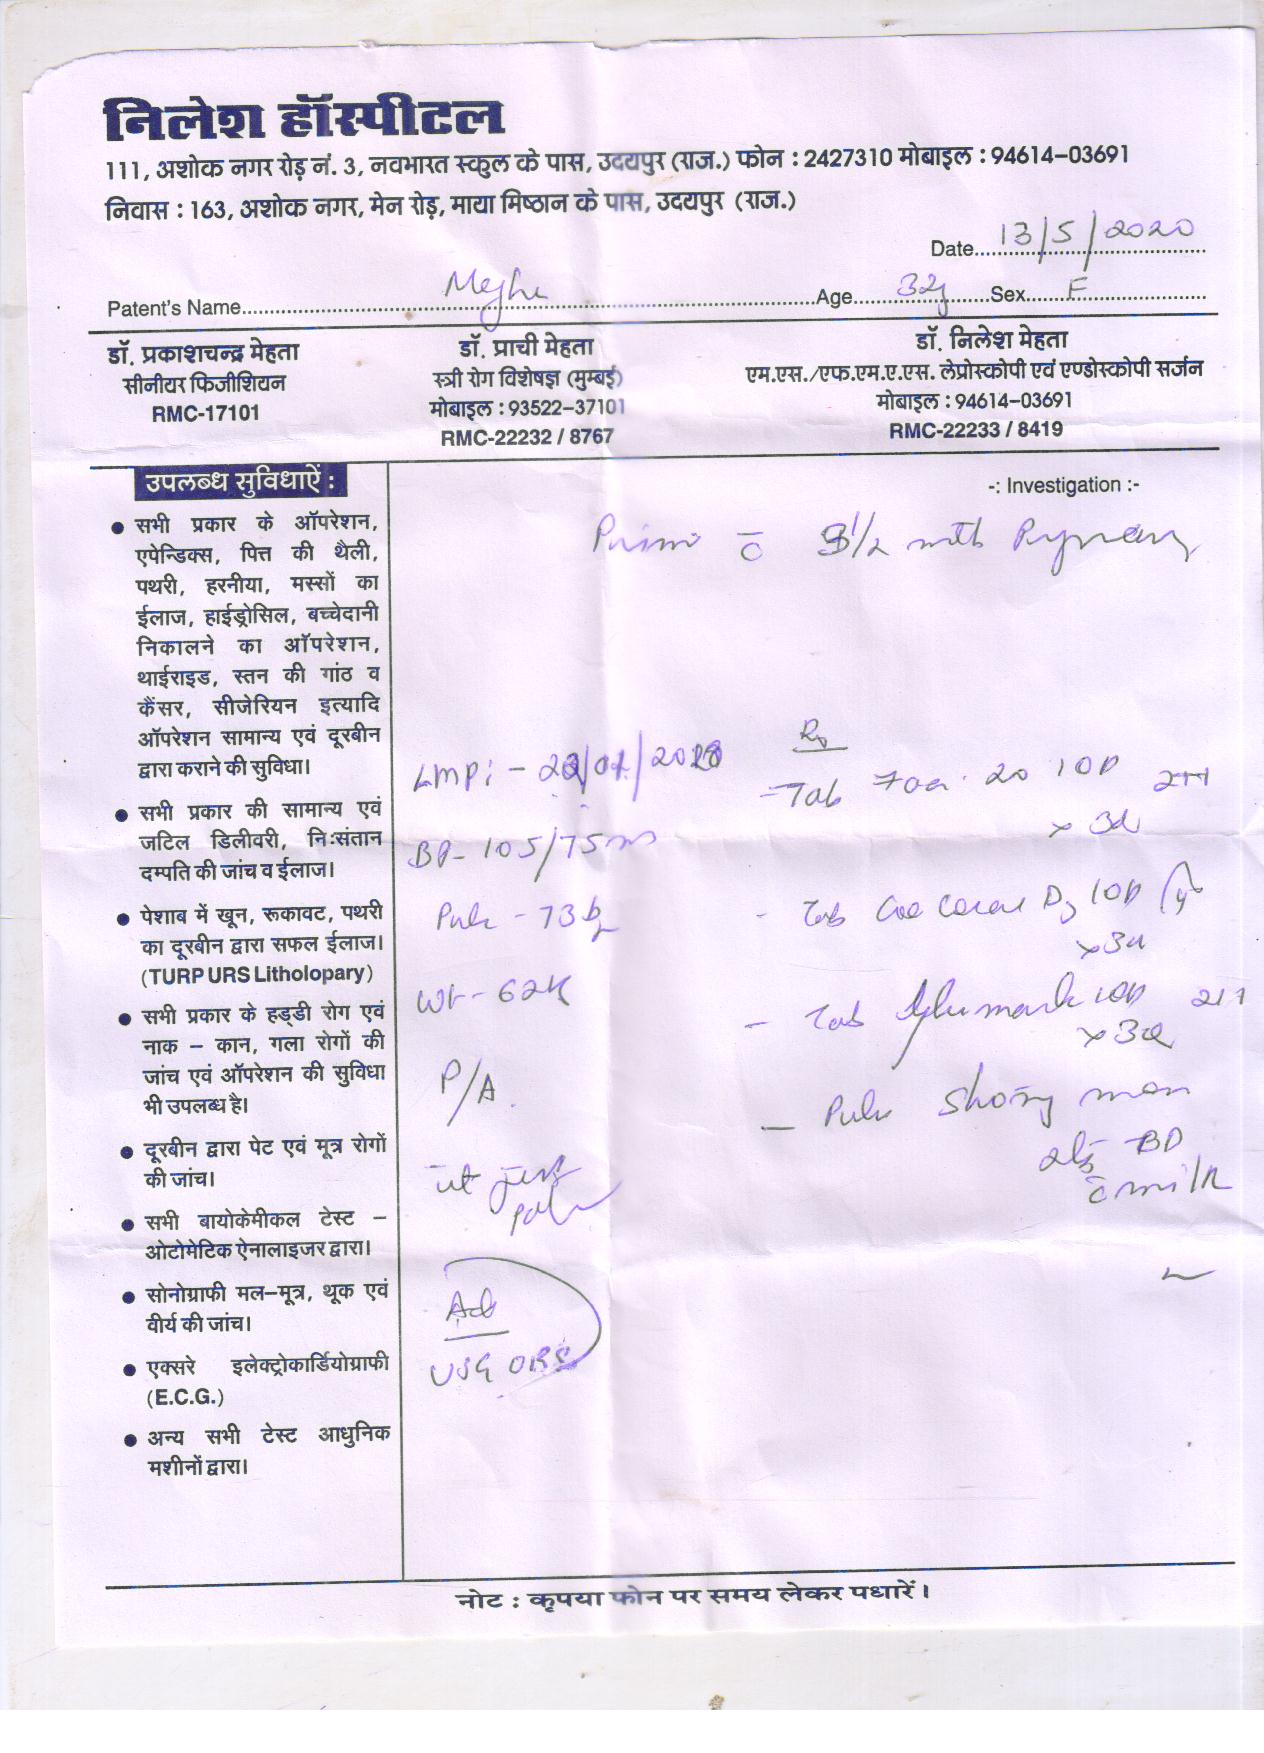 निलेश हॉस्पीटल
111, अशोक नगर रोड़ नं. 3, नवभारत स्कुल के पास, उदयपुर (राज.) फोन : 2427310 मोबाइल : 94614-03691
निवास : 163, अशोक नगर, मेन रोड़, माया मिष्ठान के पास, उदयपुर (राज.)
Date 13/5/2020
Patent's Name Megha Age 32y Sex F
डॉ. प्रकाशचन्द्र मेहता
सीनीयर फिजीशियन
RMC-17101
डॉ. प्राची मेहता
स्त्री रोग विशेषज्ञ (मुम्बई)
मोबाइल : 93522-37101
RMC-22232 / 8767
डॉ. निलेश मेहता
एम.एस./एफ.एम.ए.एस. लेप्रोस्कोपी एवं एण्डोस्कोपी सर्जन
मोबाइल : 94614-03691
RMC-22233 / 8419
उपलब्ध सुविधाऐं :
सभी प्रकार के ऑपरेशन,
एपेन्डिक्स, पित्त की थैली,
पथरी, हरनीया, मस्सों का
ईलाज, हाईड्रोसिल, बच्चेदानी
निकालने का ऑपरेशन,
थाईराइड, स्तन की गांठ व
कैंसर, सीजेरियन इत्यादि
ऑपरेशन सामान्य एवं दूरबीन
द्वारा कराने की सुविधा।
सभी प्रकार की सामान्य एवं
जटिल डिलीवरी, निःसंतान
दम्पति की जांच व ईलाज।
पेशाब में खून, रूकावट, पथरी
का दूरबीन द्वारा सफल ईलाज।
(TURP URS Litholopary)
सभी प्रकार के हड्डी रोग एवं
नाक – कान, गला रोगों की
जांच एवं ऑपरेशन की सुविधा
भी उपलब्ध है।
दूरबीन द्वारा पेट एवं मूत्र रोगों
की जांच।
सभी बायोकेमीकल टेस्ट –
ओटोमेटिक ऐनालाइजर द्वारा।
सोनोग्राफी मल-मूत्र, थूक एवं
वीर्य की जांच।
एक्सरे इलेक्ट्रोकार्डियोग्राफी
(E.C.G.)
अन्य सभी टेस्ट आधुनिक
मशीनों द्वारा।
-: Investigation :-
Primi c̄ 3 1/2 mth Pregnancy
LMP: -
BP- 105/75
Pulse - 73
Wt - 62K
P/A
ut just
Adv
USG OBS
Rx
- Tab 20 1OD
x 3
- Tab 1OD
x 3
- Tab 1OD
x 3
- Pulv
BD
c̄ milk
नोट : कृपया फोन पर समय लेकर पधारें।